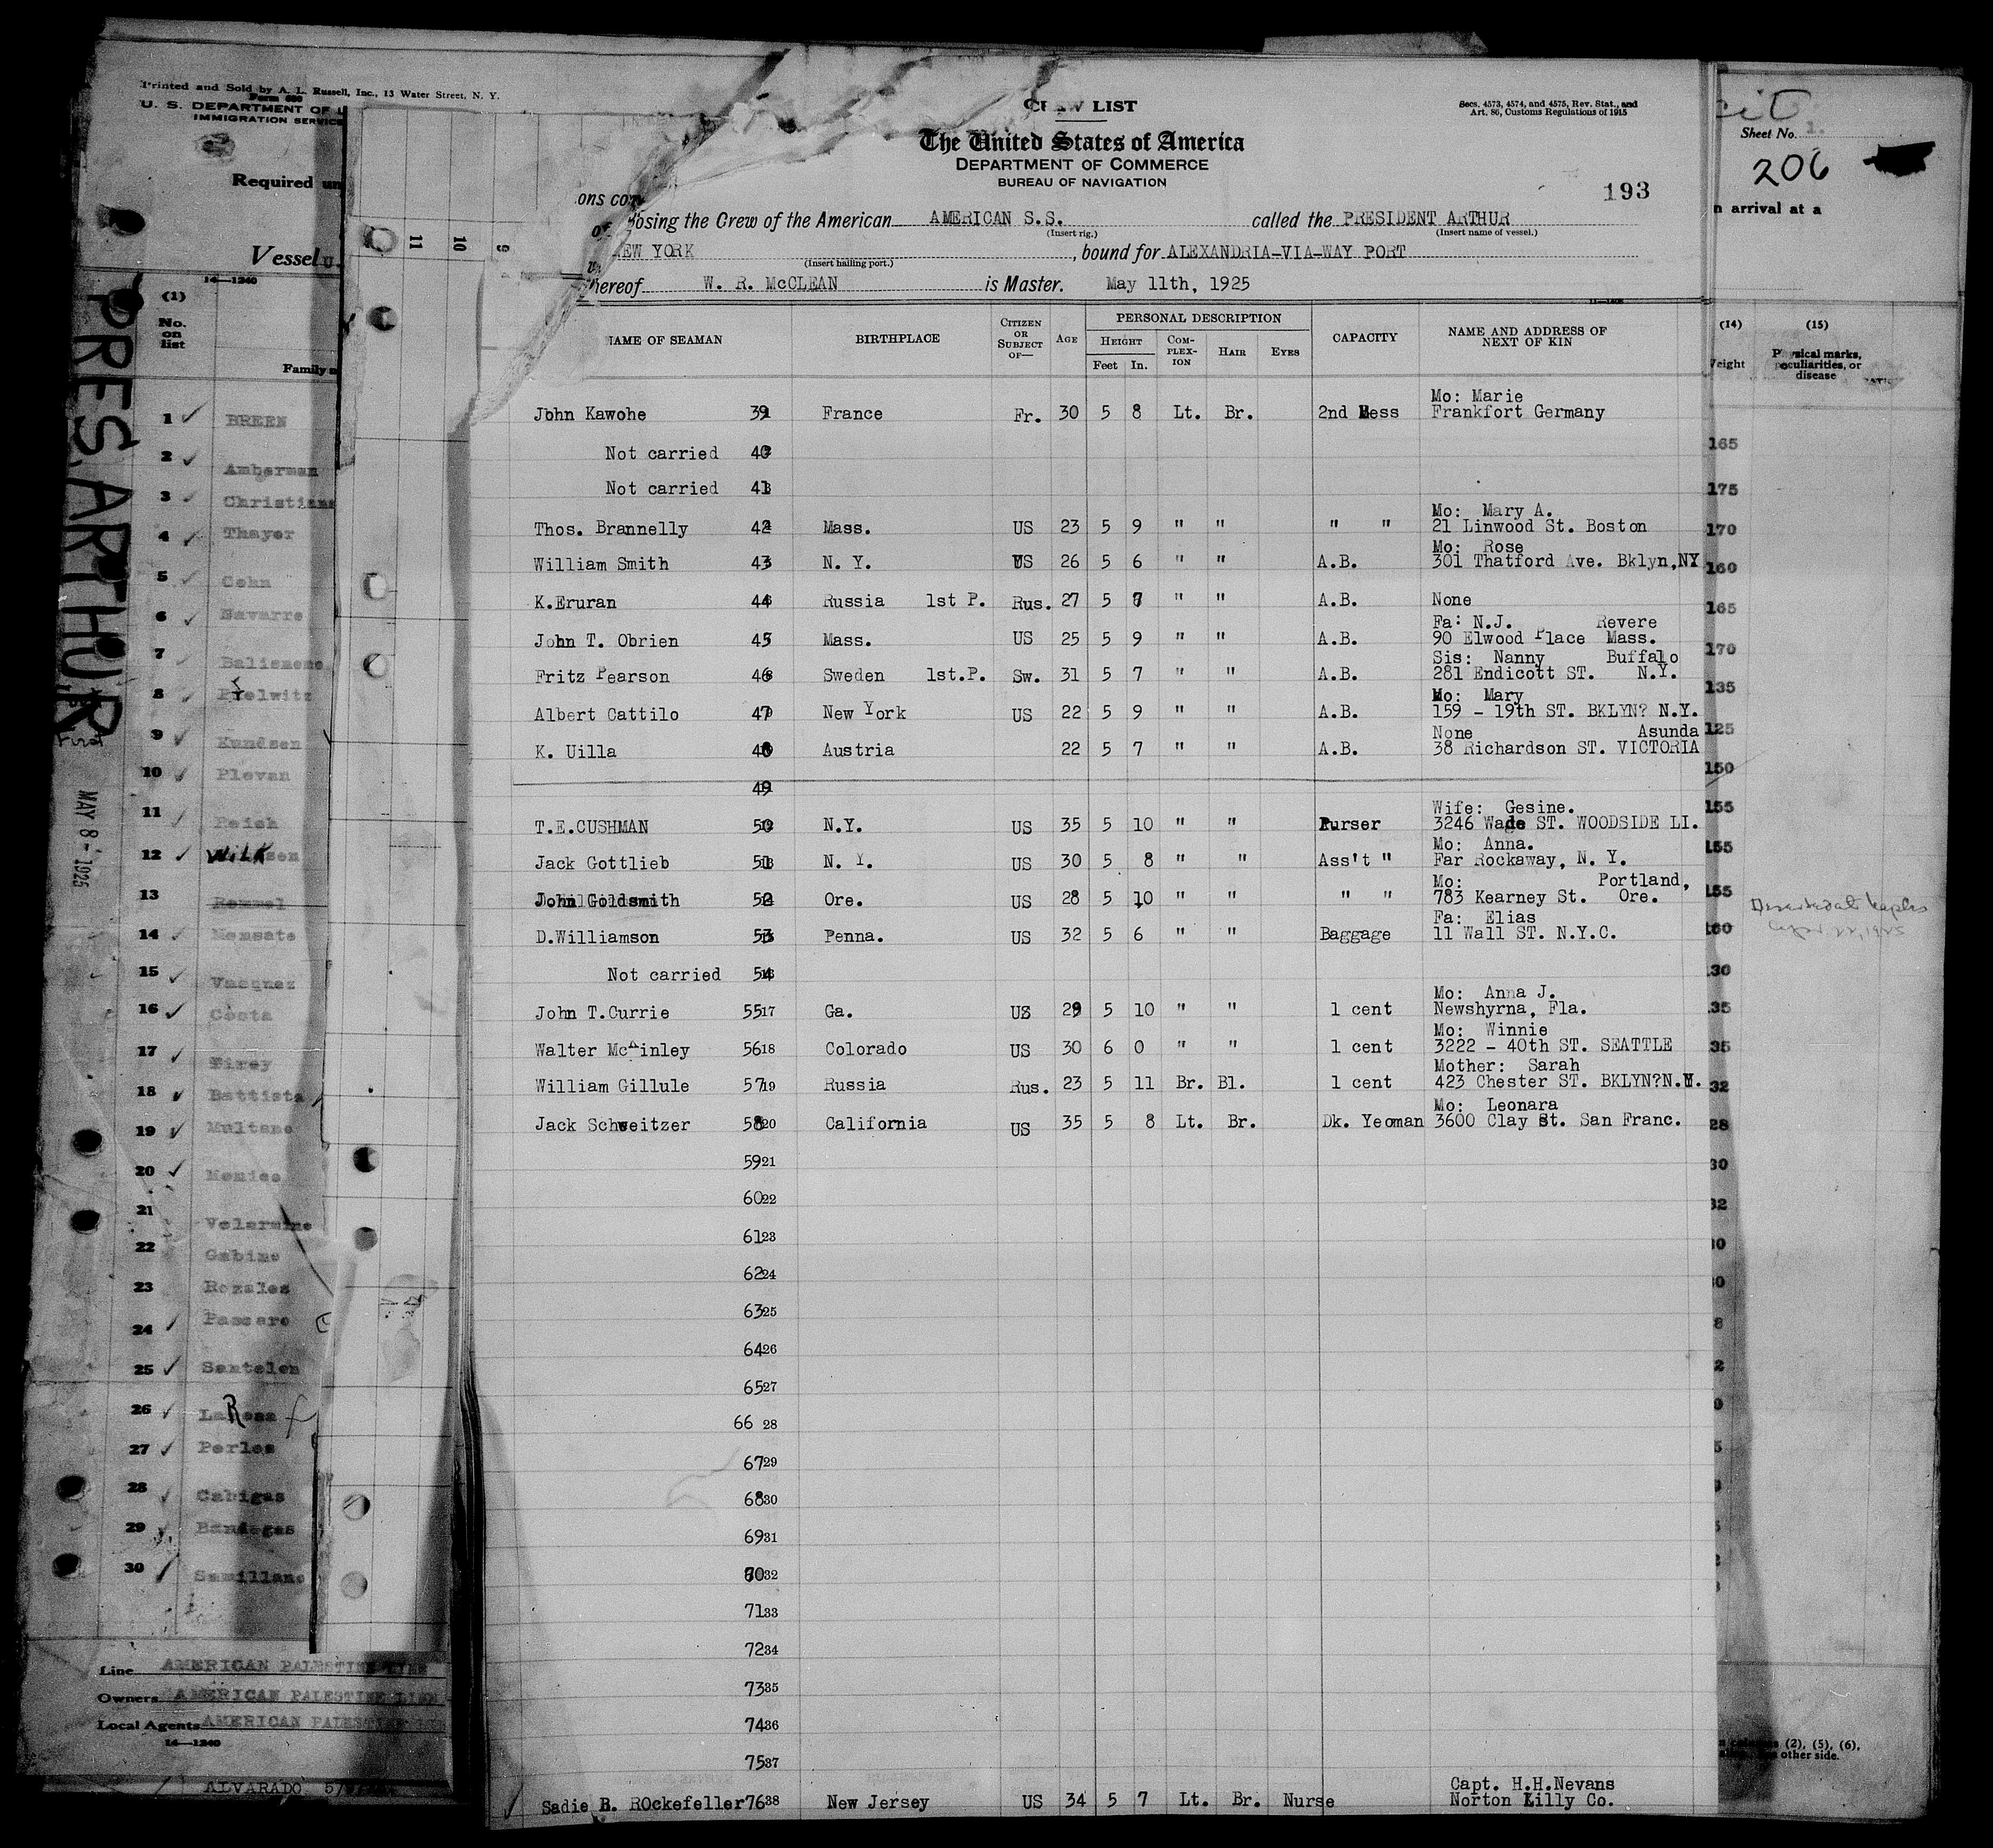 Printed and Sold by A. L. Russell, Inc., 13 Water Street, N. Y.
Form 680
U. S. DEPARTMENT OF L
IMMIGRATION SERVICE
Required un
Vessel
14—1240
(1)
No. on list
Family
PRES. ARTHUR
MAY 8 - 1925
1 BREEN
2 Amberman
3 Christians
4 Thayer
5 Cohn
6 Navarre
7
8
9 Kundsen
10 Plevan
11 Reich
12 WILK sen
13
14 Monsate
15 Vasquez
16 Costa
17
18 Battista
19 Multano
20
21
22 Gabino
23 Rozales
24 Passaro
25 Santelen
26
27 Perles
28 Cabigas
29 Bandagas
30 Samillano
Line AMERICAN PALESTINE LINE
Owners AMERICAN PALESTINE LINE
Local Agents AMERICAN PALESTINE
14—1240
ALVARADO 5/
11 10 9
CREW LIST
Secs. 4573, 4574, and 4575, Rev. Stat., and
Art. 86, Customs Regulations of 1915
The United States of America
DEPARTMENT OF COMMERCE
BUREAU OF NAVIGATION
193
ons com
posing the Crew of the American AMERICAN S.S. called the PRESIDENT ARTHUR
(Insert rig.) (Insert name of vessel.)
of NEW YORK , bound for ALEXANDRIA-VIA-WAY PORT
(Insert hailing port.)
whereof W. R. McCLEAN is Master. May 11th, 1925
NAME OF SEAMAN BIRTHPLACE CITIZEN OR SUBJECT OF— AGE PERSONAL DESCRIPTION CAPACITY NAME AND ADDRESS OF NEXT OF KIN
HEIGHT COMPLEXION HAIR EYES
Feet In.
Mo: Marie
John Kawohe 39 France Fr. 30 5 8 Lt. Br. 2nd Mess Frankfort Germany
Not carried 40
Not carried 41
Mo: Mary A.
Thos. Brannelly 42 Mass. US 23 5 9 " " " " 21 Linwood St. Boston
Mo: Rose
William Smith 43 N. Y. US 26 5 6 " " A.B. 301 Thatford Ave. Bklyn,NY
K.Eruran 44 Russia 1st P. Rus. 27 5 7 " " A.B. None
Fa: N.J. Revere
John T. Obrien 45 Mass. US 25 5 9 " " A.B. 90 Elwood Place Mass.
Sis: Nanny Buffalo
Fritz Pearson 46 Sweden 1st.P. Sw. 31 5 7 " " A.B. 281 Endicott ST. N.Y.
Mo: Mary
Albert Cattilo 47 New York US 22 5 9 " " A.B. 159 - 19th ST. BKLYN? N.Y.
None Asunda
K. Uilla 48 Austria 22 5 7 " " A.B. 38 Richardson ST. VICTORIA
49
Wife: Gesine.
T.E.CUSHMAN 50 N.Y. US 35 5 10 " " Purser 3246 Wade ST. WOODSIDE LI.
Mo: Anna.
Jack Gottlieb 51 N. Y. US 30 5 8 " " Ass't " Far Rockaway, N. Y.
Mo: Portland,
John Goldsmith 52 Ore. US 28 5 10 " " " " 783 Kearney St. Ore.
Fa: Elias
D.Williamson 53 Penna. US 32 5 6 " " Baggage 11 Wall ST. N.Y.C.
Not carried 54
Mo: Anna J.
John T.Currie 5517 Ga. US 29 5 10 " " 1 cent Newshyrna, Fla.
Mo: Winnie
Walter McKinley 5618 Colorado US 30 6 0 " " 1 cent 3222 - 40th ST. SEATTLE
Mother: Sarah
William Gillule 5719 Russia Rus. 23 5 11 Br. Bl. 1 cent 423 Chester ST. BKLYN?N.Y.
Mo: Leonara
Jack Schweitzer 5820 California US 35 5 8 Lt. Br. Dk. Yeoman 3600 Clay St. San Franc.
5921
6022
6123
6224
6325
6426
6527
66 28
6729
6830
6931
7032
7133
7234
7335
7436
7537
Capt. H.H.Nevans
Sadie B. ROckefeller7638 New Jersey US 34 5 7 Lt. Br. Nurse Norton Lilly Co.
Sheet No. 1.
206
n arrival at a
(14) (15)
Weight Physical marks, peculiarities, or disease
165
175
170
160
165
170
135
125
150
155
155
155
160
130
135
35
32
28
30
32
30
(2), (5), (6),
other side.